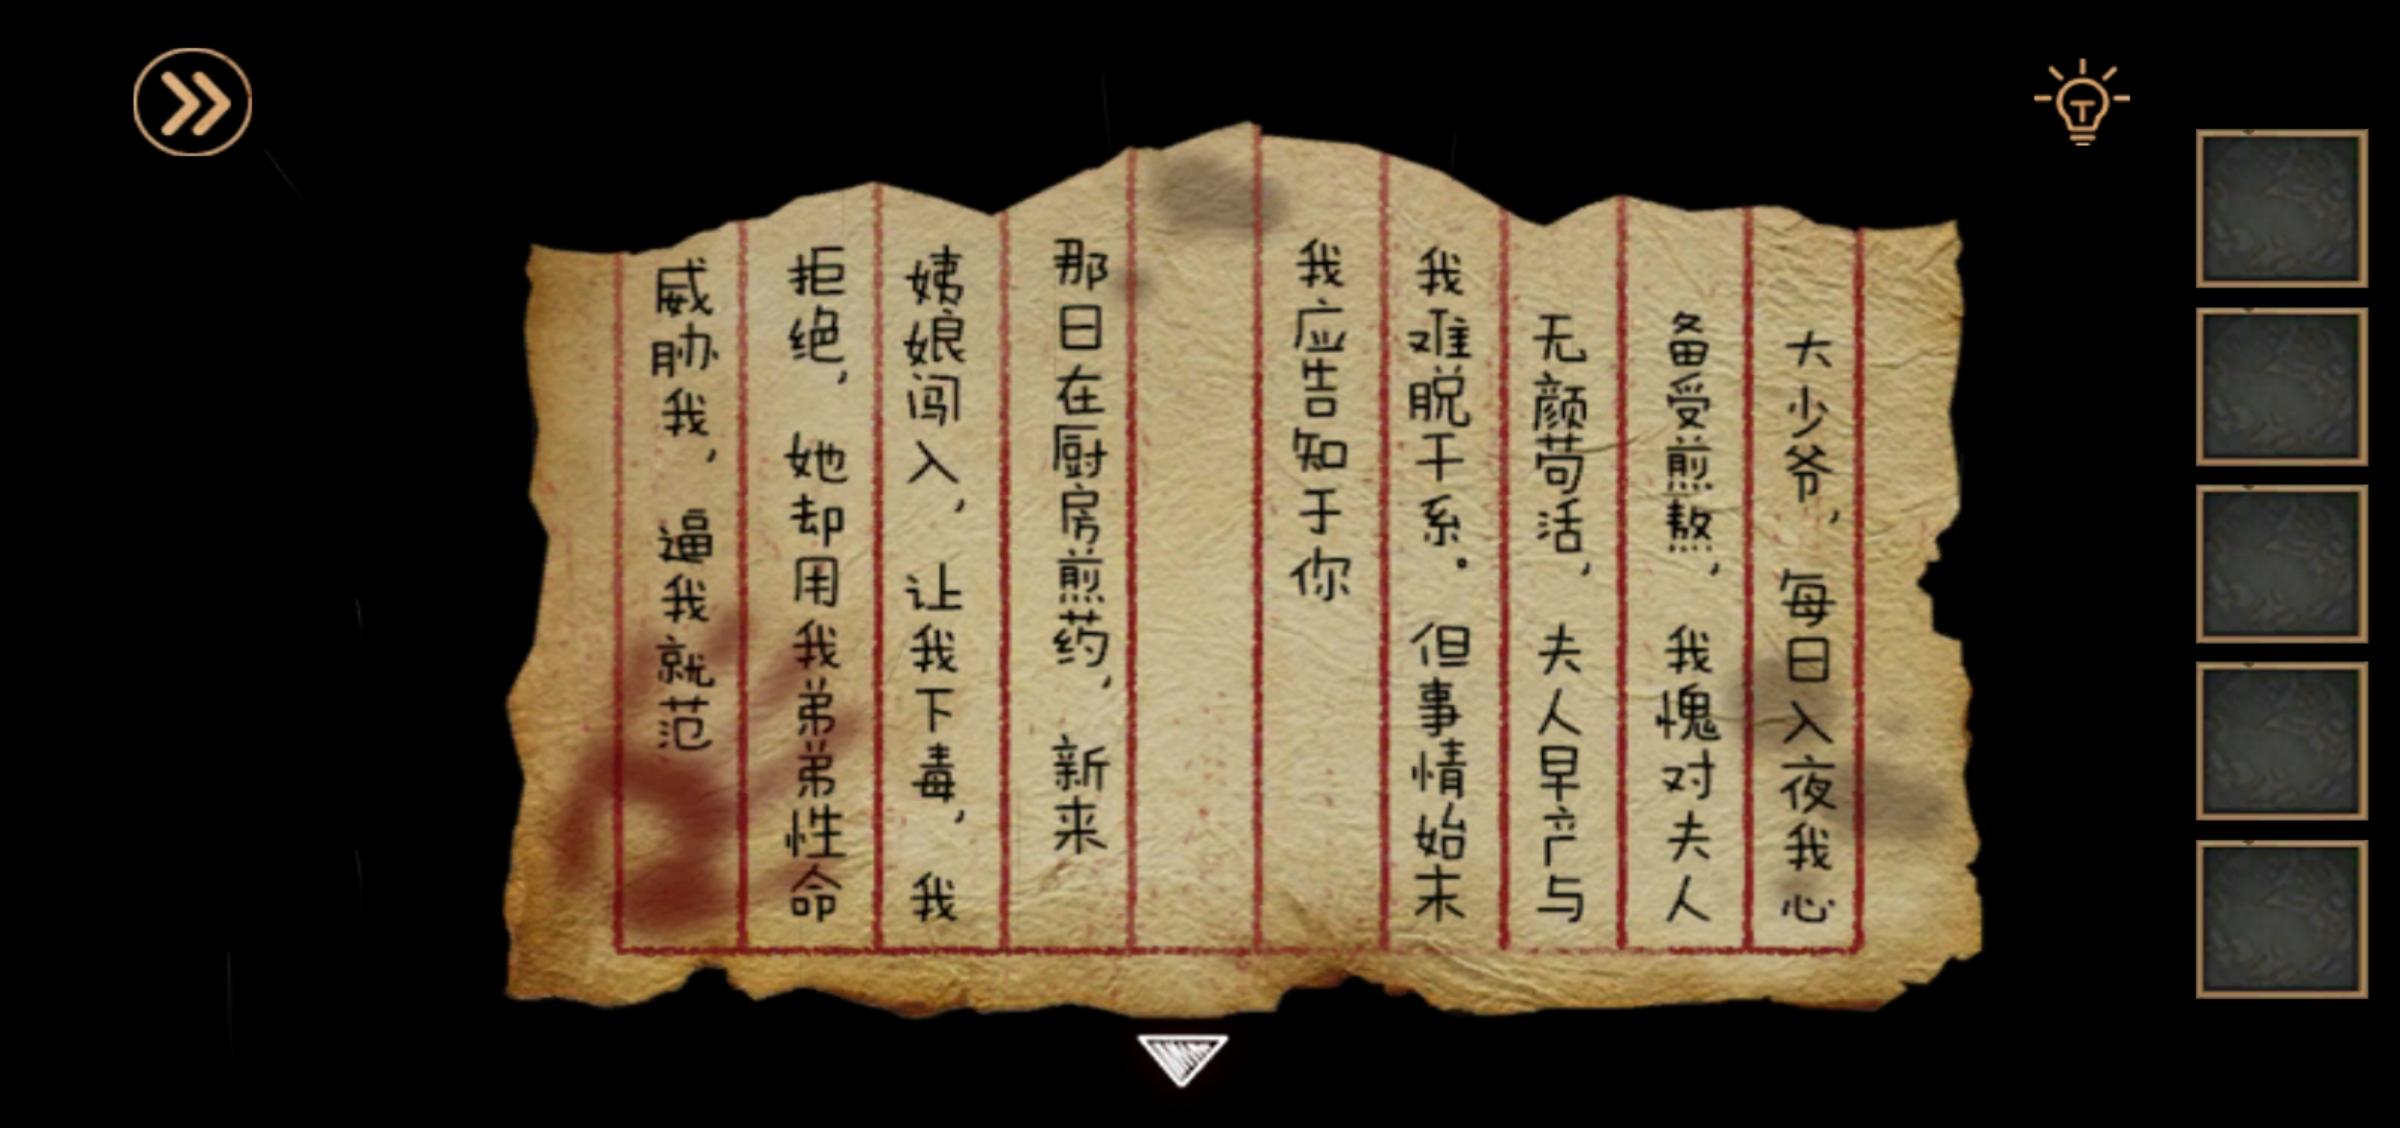 大少爷，每日入夜我心
备受煎熬，我愧对夫人
无颜苟活，夫人早产与
我难脱干系。但事情始末
我应告知于你
那日在厨房煎药，新来
姨娘闯入，让我下毒，我
拒绝，她却用我弟弟性命
威胁我，逼我就范